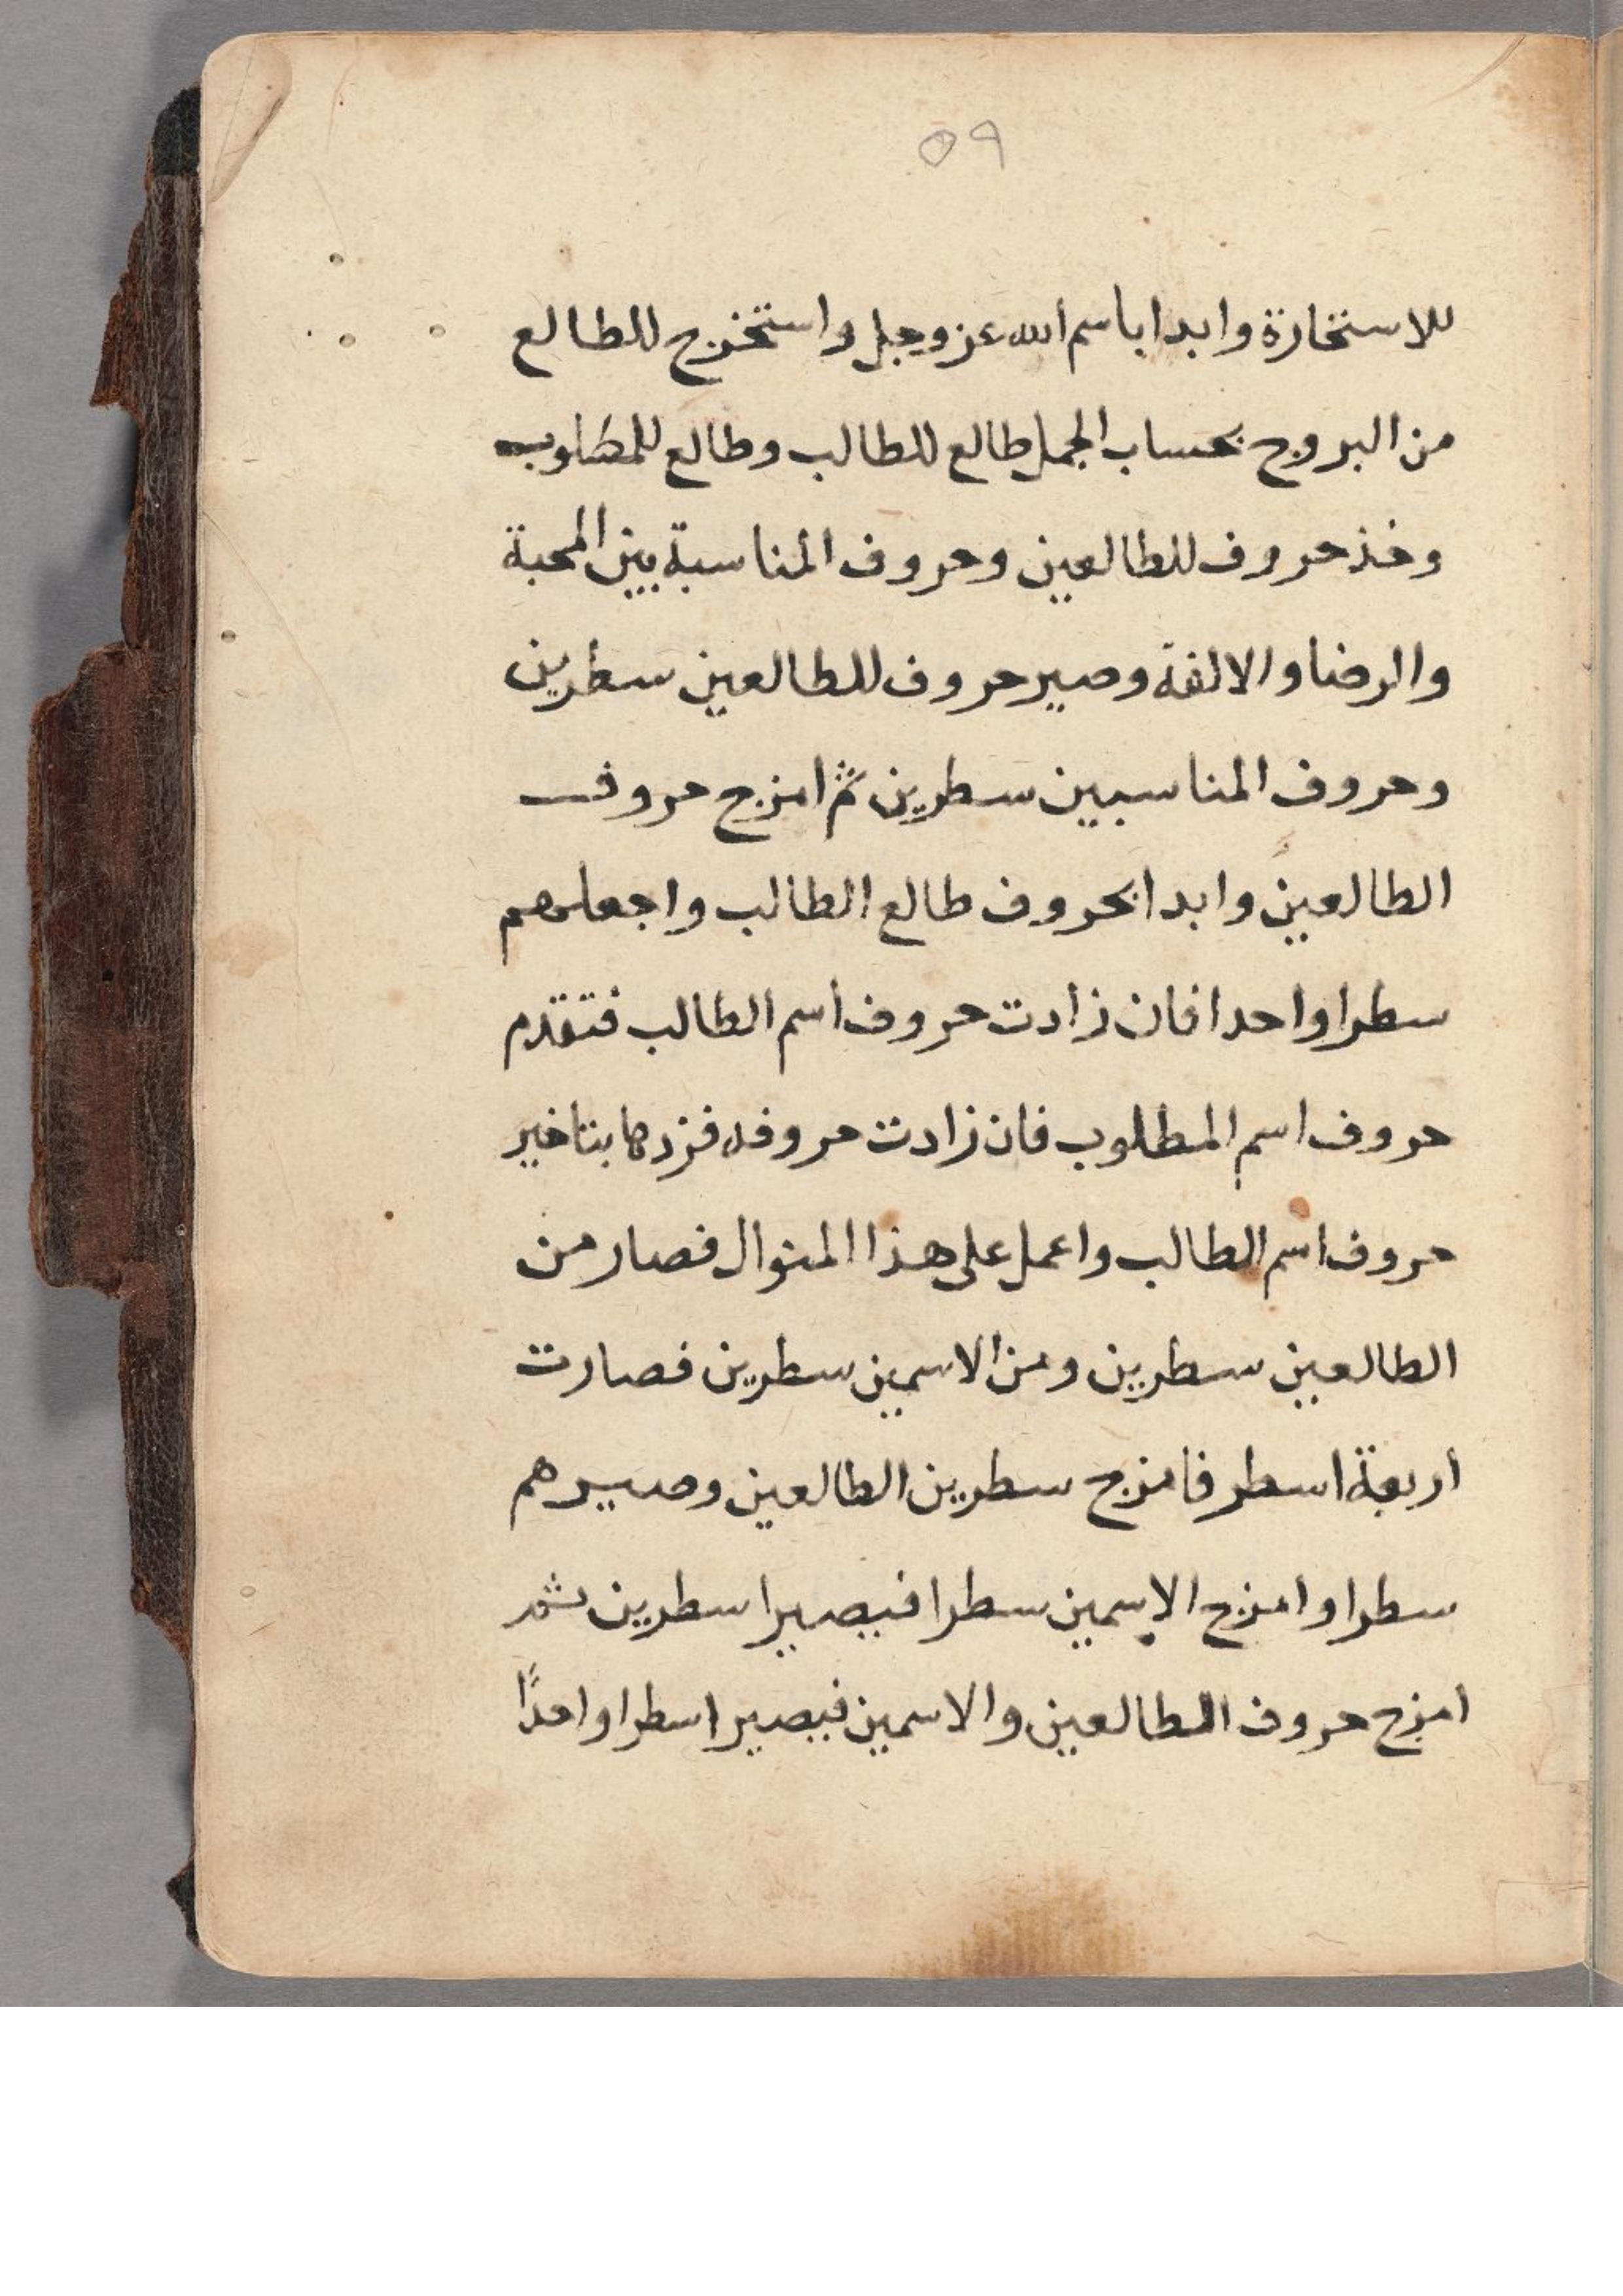 ٥٩
للاستخارة وابدا باسم الله عز وجل واستخرج للطالع
من البروج بحساب الجمل طالع للطالب وطالع للمطلوب
وخذ حروف للطالعين وحروف المناسبة بين المحبة
والرضا والالفة وصير حروف للطالعين سطرين
وحروف المناسبين سطرين ثم امزج حروف
الطالعين وابدا بحروف طالع الطالب واجعلهم
سطرا واحدا فان زادت حروف اسم الطالب فتقدم
حروف اسم المطلوب فان زادت حروفه فزدها بتاخير
حروف اسم الطالب واعمل على هذا المنوال فصار من
الطالعين سطرين ومن الاسمين سطرين فصارت
اربعة اسطر فامزج سطرين الطالعين وصيرهم
سطرا وامزج الاسمين سطرا فيصيرا سطرين ثم
امزج حروف الطالعين والاسمين فيصيرا سطرا واحدًا